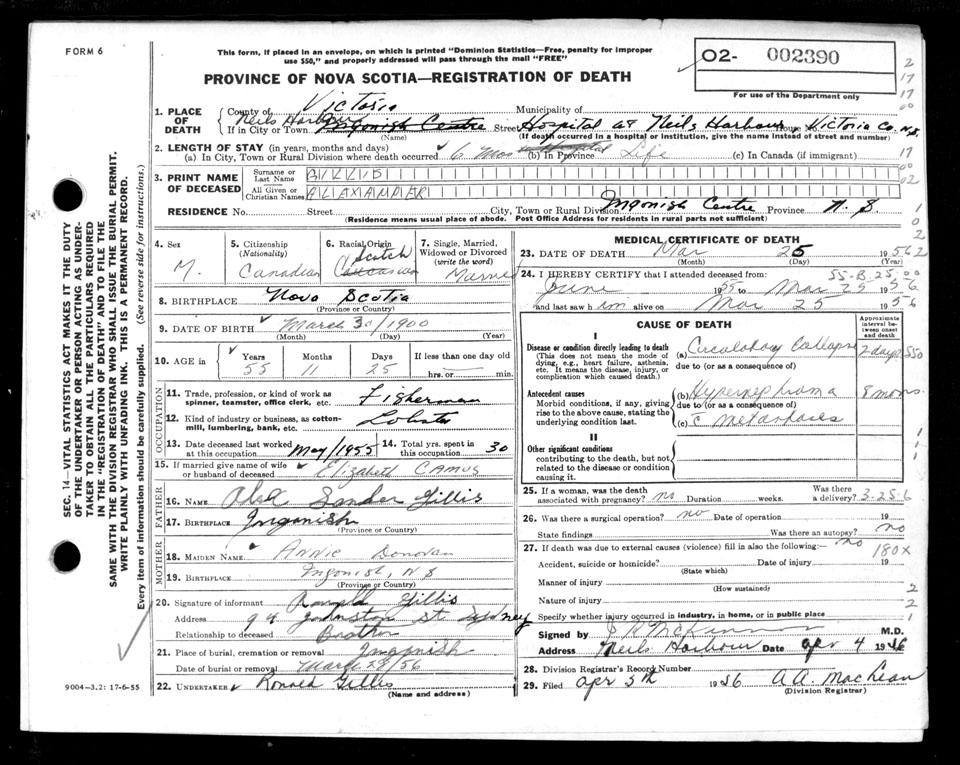 FORM 6
This form, if placed in an envelope, on which is printed "Dominion Statistics—Free, penalty for improper
use $50," and properly addressed will pass through the mail "FREE"
PROVINCE OF NOVA SCOTIA—REGISTRATION OF DEATH
02- 002390
For use of the Department only
2
17
17
00
1. PLACE OF DEATH
County of Victoria Municipality of
Neils Harbour
If in City or Town Ingonish Centre Street Hospital at Neils Harbour House No. Victoria Co. N.S.
(Name) (If death occurred in a hospital or institution, give the name instead of street and number)
2. LENGTH OF STAY (in years, months and days)
(a) In City, Town or Rural Division where death occurred 6 mos (b) In Province Life (c) In Canada (if immigrant)
17
00
02
3. PRINT NAME OF DECEASED
Surname or Last Name GILLIS
All Given or Christian Names ALEXANDER
RESIDENCE No. Street City, Town or Rural Division Ingonish Centre Province N.S
(Residence means usual place of abode. Post Office Address for residents in rural parts not sufficient)
4. Sex
M.
5. Citizenship
(Nationality)
Canadian
6. Racial Origin
Scotch
Caucasian
7. Single, Married, Widowed or Divorced
(write the word)
Married
8. BIRTHPLACE Nova Scotia
(Province or Country)
9. DATE OF BIRTH March 30/1900
(Month) (Day) (Year)
10. AGE in
Years 55
Months 11
Days 25
If less than one day old
hrs. or min.
OCCUPATION
11. Trade, profession, or kind of work as spinner, teamster, office clerk, etc. Fisherman
12. Kind of industry or business, as cotton-mill, lumbering, bank, etc. Lobster
13. Date deceased last worked at this occupation May/1955
14. Total yrs. spent in this occupation 30
15. If married give name of wife or husband of deceased Elizabeth CAMUS
FATHER
16. NAME Sander Gillis
17. BIRTHPLACE Ingonish
(Province or Country)
MOTHER
18. MAIDEN NAME Annie Donovan
19. BIRTHPLACE Ingonish, N S
(Province or Country)
20. Signature of informant Ronald Gillis
Address 94 Johnston St. Sydney
Relationship to deceased Brother
21. Place of burial, cremation or removal Ingonish
Date of burial or removal March 28/56
22. UNDERTAKER Ronald Gillis
MEDICAL CERTIFICATE OF DEATH
23. DATE OF DEATH Mar 25 1956
(Month) (Day)
55-B.25.00
24. I HEREBY CERTIFY that I attended deceased from:
June 1955 to Mar 25 1956
and last saw him alive on Mar 25 1956
CAUSE OF DEATH
Approximate interval between onset and death
I
Disease or condition directly leading to death
(This does not mean the mode of dying, e.g., heart failure, asthenia, etc. It means the disease, injury, or complication which caused death.)
(a) Circulatory Collapse 2 days
due to (or as a consequence of)
Antecedent causes
Morbid conditions, if any, giving rise to the above cause, stating the underlying condition last.
(b) Hypernephroma 8 mons.
due to (or as a consequence of)
(c) c̄ metastases
II
Other significant conditions
contributing to the death, but not related to the disease or condition causing it.
25. If a woman, was the death associated with pregnancy? no Duration weeks. Was there a delivery? 3-25-6
26. Was there a surgical operation? no Date of operation 19
State findings Was there an autopsy? no
27. If death was due to external causes (violence) fill in also the following:— no 180X
Accident, suicide or homicide? Date of injury 19
(State which)
Manner of injury
(How sustained)
Nature of injury
Specify whether injury occurred in industry, in home, or in public place
Signed by McKinnon M.D.
Address Neils Harbour Date Apr 4 1956
28. Division Registrar's Record Number
29. Filed Apr 5th 1956 A A. MacLean
(Division Registrar)
SEC. 14—VITAL STATISTICS ACT MAKES IT THE DUTY
OF THE UNDERTAKER OR PERSON ACTING AS UNDER-
TAKER TO OBTAIN ALL THE PARTICULARS REQUIRED
IN THE "REGISTRATION OF DEATH" AND TO FILE THE
SAME WITH THE DIVISION REGISTRAR WHO SHALL ISSUE THE BURIAL PERMIT.
WRITE PLAINLY WITH UNFADING INK. THIS IS A PERMANENT RECORD.
Every item of information should be carefully supplied. (See reverse side for instructions.)
9004-3.2: 17-6-55